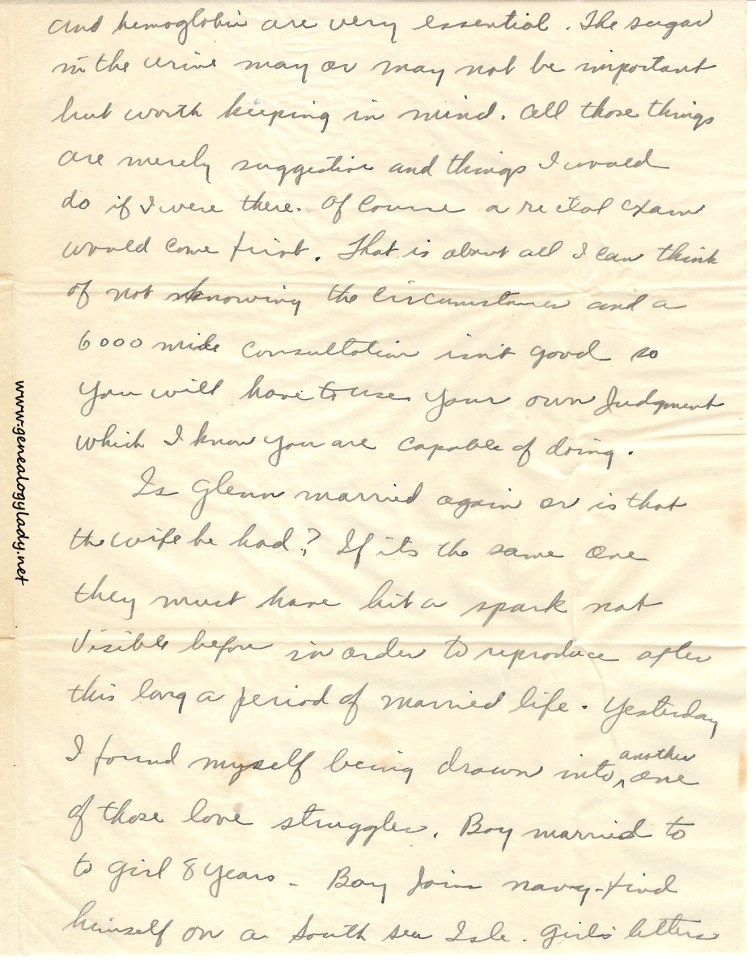 and hemoglobin are very essential. The sugar
in the urine may or may not be important
but worth keeping in mind. All those things
are merely suggestive and things I would
do if I were there. Of course a rectal exam
would come first. That is about all I can think
of not knowing the circumstances and a
6000 mile consultation isn't good so
you will have to use your own judgment
which I know you are capable of doing.
Is Glenn married again or is that
the wife he had? If its the same one
they must have hit a spark not
visible before in order to reproduce after
this long a period of married life. Yesterday
I found myself being drawn into another one
of those love struggles. Boy married to
to girl 8 years - Boy joins navy - find
himself on a South sea Isle. Girls letters
www.genealogylady.net